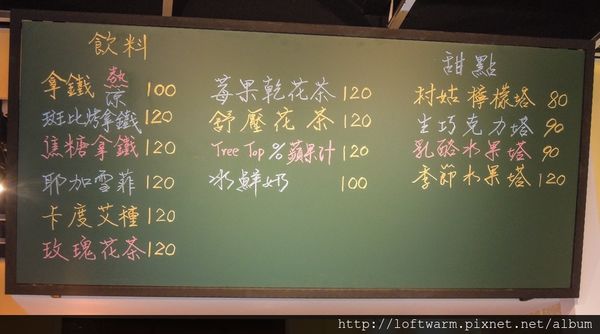 飲料
拿鐵 熱 涼 100
斑比烤拿鐵 120
焦糖拿鐵 120
耶加雪菲 120
卡度艾種 120
玫瑰花茶 120
莓果乾花茶 120
舒壓花茶 120
Tree Top % 蘋果汁 120
冰鮮奶 100
甜點
村姑檸檬塔 80
生巧克力塔 90
乳酪水果塔 90
季節水果塔 120
http://loftwarm.pixnet.net/album